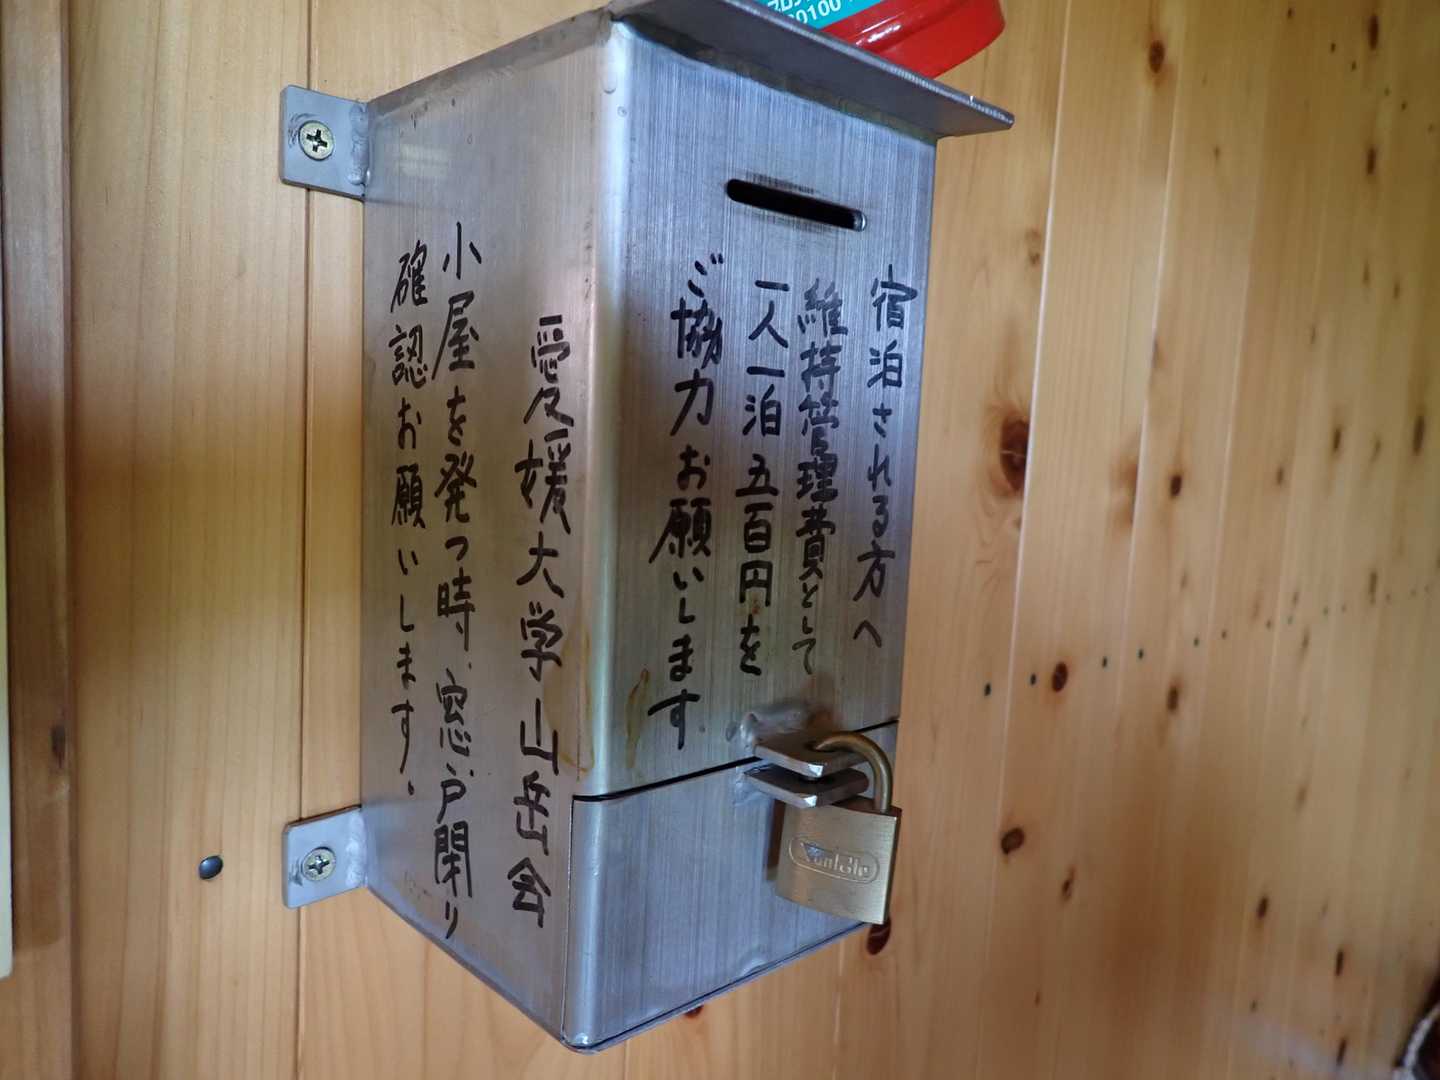 宿泊される方へ
維持管理費として
一人一泊五百円を
ご協力お願いします
愛媛大学山岳会
小屋を発つ時、窓、戸閉り
確認お願いします。